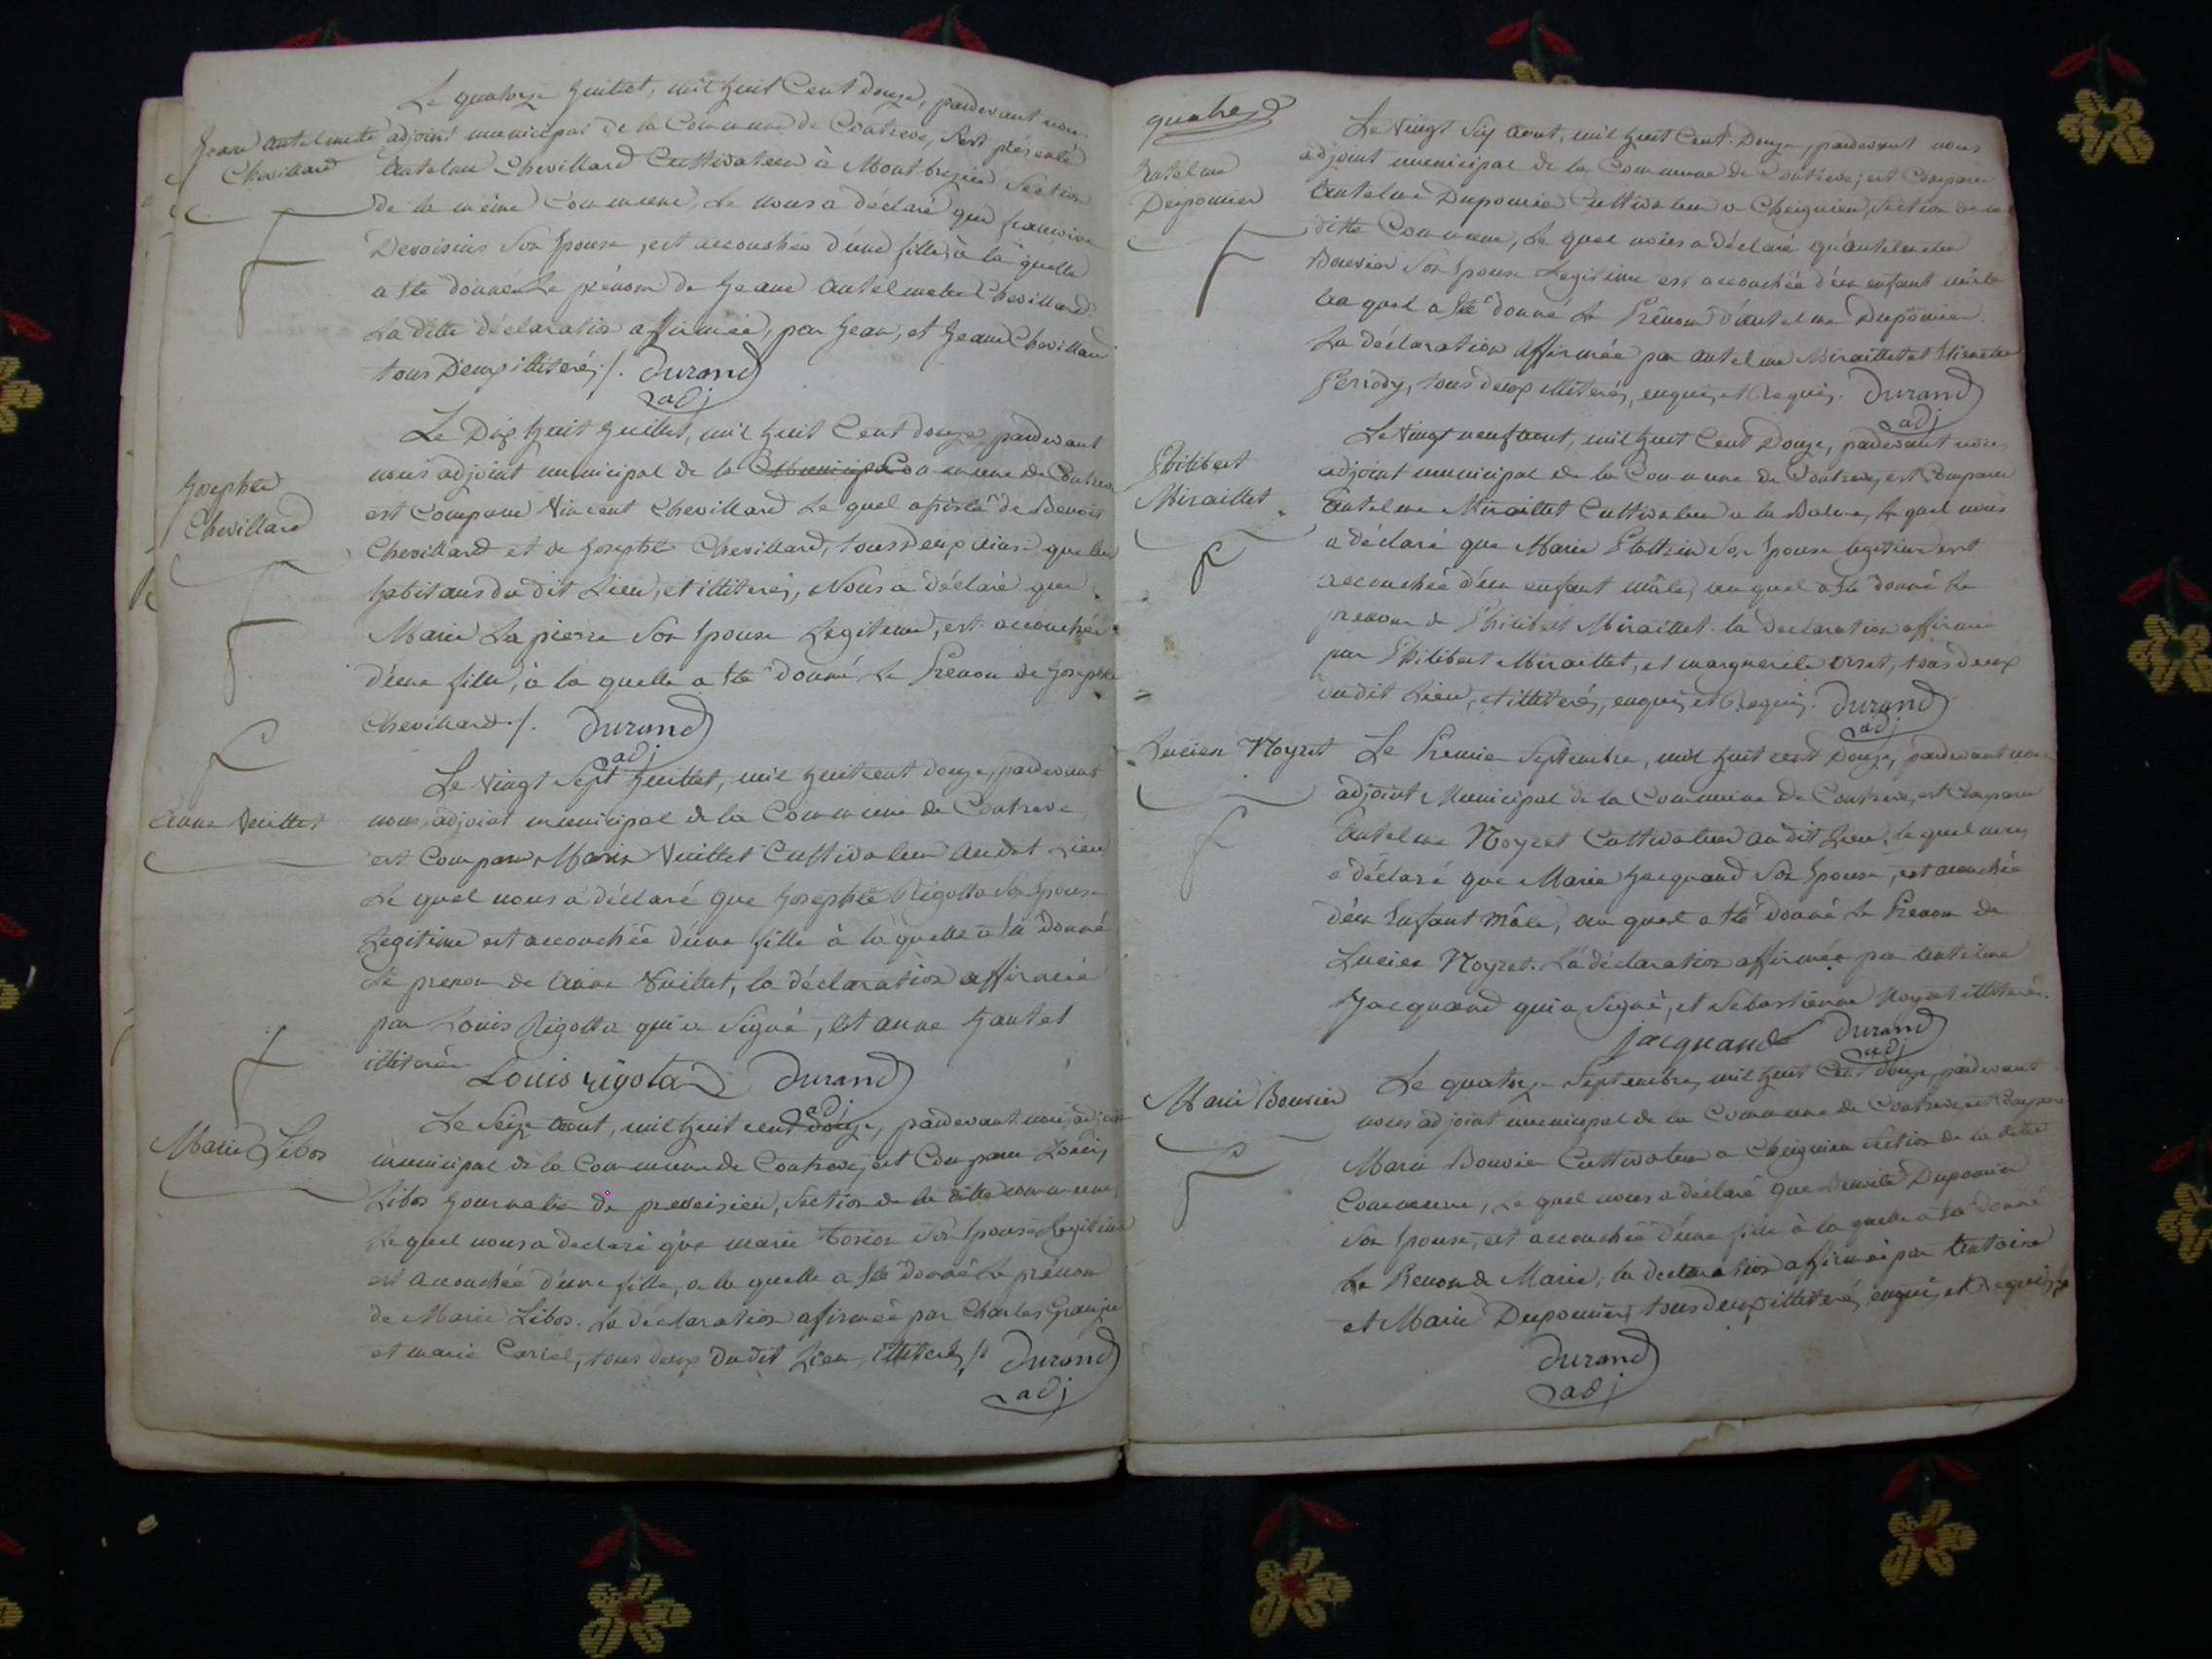 Le quatorze Juillet, mil huit Cent douze, pardevant nous
Jeanne antelmette adjoint municipal de la Commune de Contrevoz, s'est présenté
Chevillard Antelme Chevillard Cultivateur à Montbrezieu Section
de la même Commune, Le nous a déclaré que francoise
Devoisins Son Epouse, est accouchée d'une fille, à la quelle
a été donné Le prénom de Jeanne Antelmette Chevillard
La ditte déclaration affirmée, par Jean, et Jeanne Chevillard
tous Deux illiterés ./. Durand
adj
Le Dix huit Juillet, mil huit Cent douze, pardevant
nous adjoint municipal de la Commune de
Josephte
Chevillard
est Comparu Vincent Chevillard Le quel assisté de Benoit
Chevillard et de Josephte Chevillard, tous deux ainsi que lui
habitans du dit Lieu, et illiterés, Nous a déclaré que
Marie La pierre Son Epouse Legitime, est accouchée
d'une fille, à la quelle a été donné Le Prénom de Josephte
Chevillard ./. Durand
adj
Le Vingt Sept Juillet, mil huit cent douze, pardevant
Anne Vuillet nous adjoint municipal de la Commune de Contrevoz
est Comparu Marin Vuillet Cultivateur audit Lieu
Le quel nous a déclaré que Josephte Rigotta Son Epouse
Legitime est accouchée d'une fille à la quelle a été Donné
Le prenom de Anne Vuillet, la déclaration affirmée
par Louis Rigotta qui a Signé, et Anne hautet
illiterée
Louis rigotaz Durand
adj
Le Seize Aout, mil huit cent douze, pardevant nous adjoint
Marie Libos municipal de la Commune de Contrevoz, est Comparu Louis
Libos Journalier de preveisieu, Section de la ditte commune,
Le quel nous a declaré que marie Son Epouse Legitime
est accouchée d'une fille, a la quelle a été donné Le prénom
de Marie Libos. La déclaration affirmée par Charles
et marie, tous deux Dudit Lieu, illiterés ./. Durand
adj
quatre
Le Vingt Six Aout, mil huit Cent Douze, pardevant nous
Antelme
Dupomier
adjoint municipal de la Commune de Contrevoz, est Comparu
Antelme Dupomier Cultivateur a Cheignieu, Section de la
ditte Commune, Le quel nous a déclaré qu'antelmette
Bouvier Son Epouse Legitime est accouchée d'un enfant mâle
au quel a été donné Le Prénom d'antelme Dupomier.
La déclaration affirmée par antelme Miraillet et
tous deux illiterés, enquis et Requis. Durand
adj
Le Vingt neuf aout, mil huit Cent Douze, pardevant nous
Philibert
Miraillet
adjoint municipal de la Commune de Contrevoz, est Comparu
Antelme Miraillet Cultivateur a la Balme, le quel nous
a déclaré que Marie Son Epouse legitime est
accouchée d'un enfant mâle, au quel a été donné Le
prenom de Philibert Miraillet. la Declaration affirmée
par Philibert Miraillet, et marguerite orset, tous deux
dudit Lieu, et illiterés, enquis et Requis. Durand
adj
Lucien Noyret Le Premier Septembre, mil huit cent Douze, pardevant nous
adjoint Municipal de la Commune De Contrevoz, est Comparu
Antelme Noyret Cultivateur audit Lieu, le quel nous
a déclaré que Marie Jacquand Son Epouse, est accouchée
d'un Enfant mâle, au quel a été donné Le Prenom de
Lucien Noyret. La déclaration affirmée par Antelme
Jacquand qui a Signé, et Sebastienne Noyret illiterée.
Jacquand Durand
adj
Marie Bouvier Le quatorze Septembre, mil huit Cent Douze, pardevant
nous adjoint municipal de la Commune de Contrevoz, est Comparu
Marin Bouvier Cultivateur a Cheignieu Section de la ditte
Commune, Le quel nous a déclaré que Dupomier
Son Epouse, est accouchée d'une fille à la quelle a été donné
Le Prenom de Marie, la declaration affirmée par Antoine
et Marie Dupomier, tous deux illiterés, enquis et Requis
Durand
adj